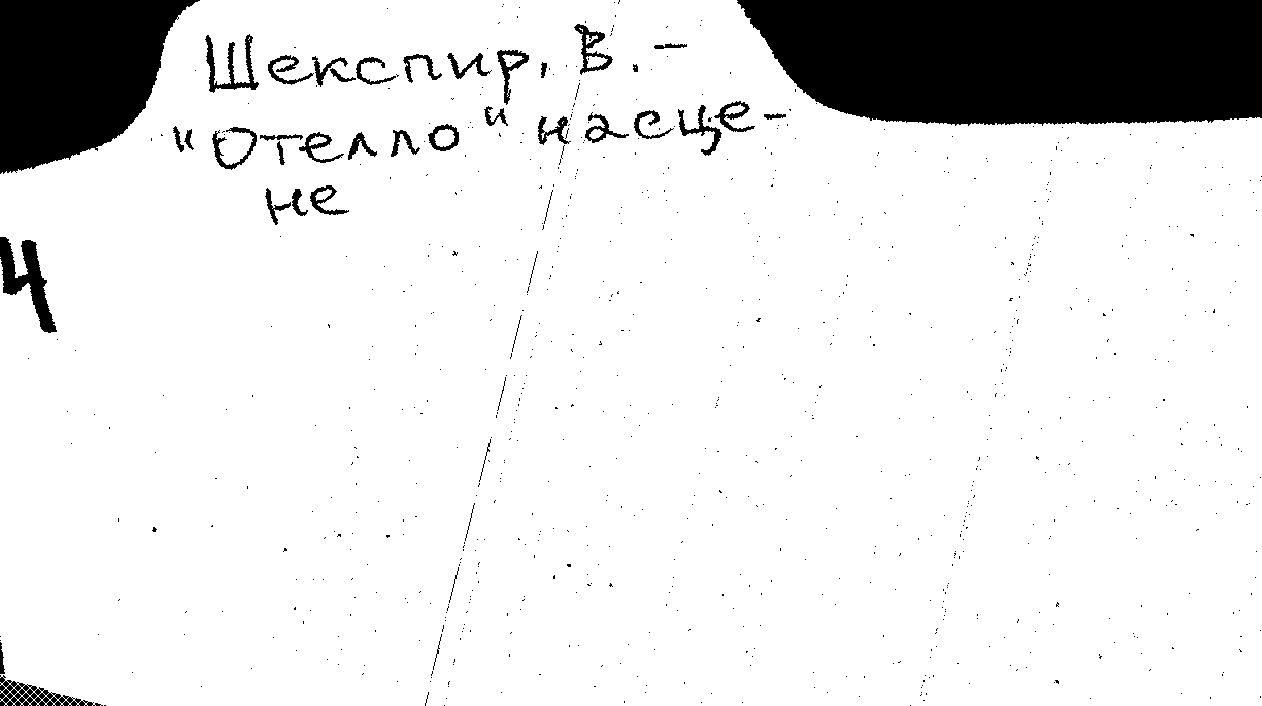 Шекспир, В. –
"Отелло" на сце-
не
4